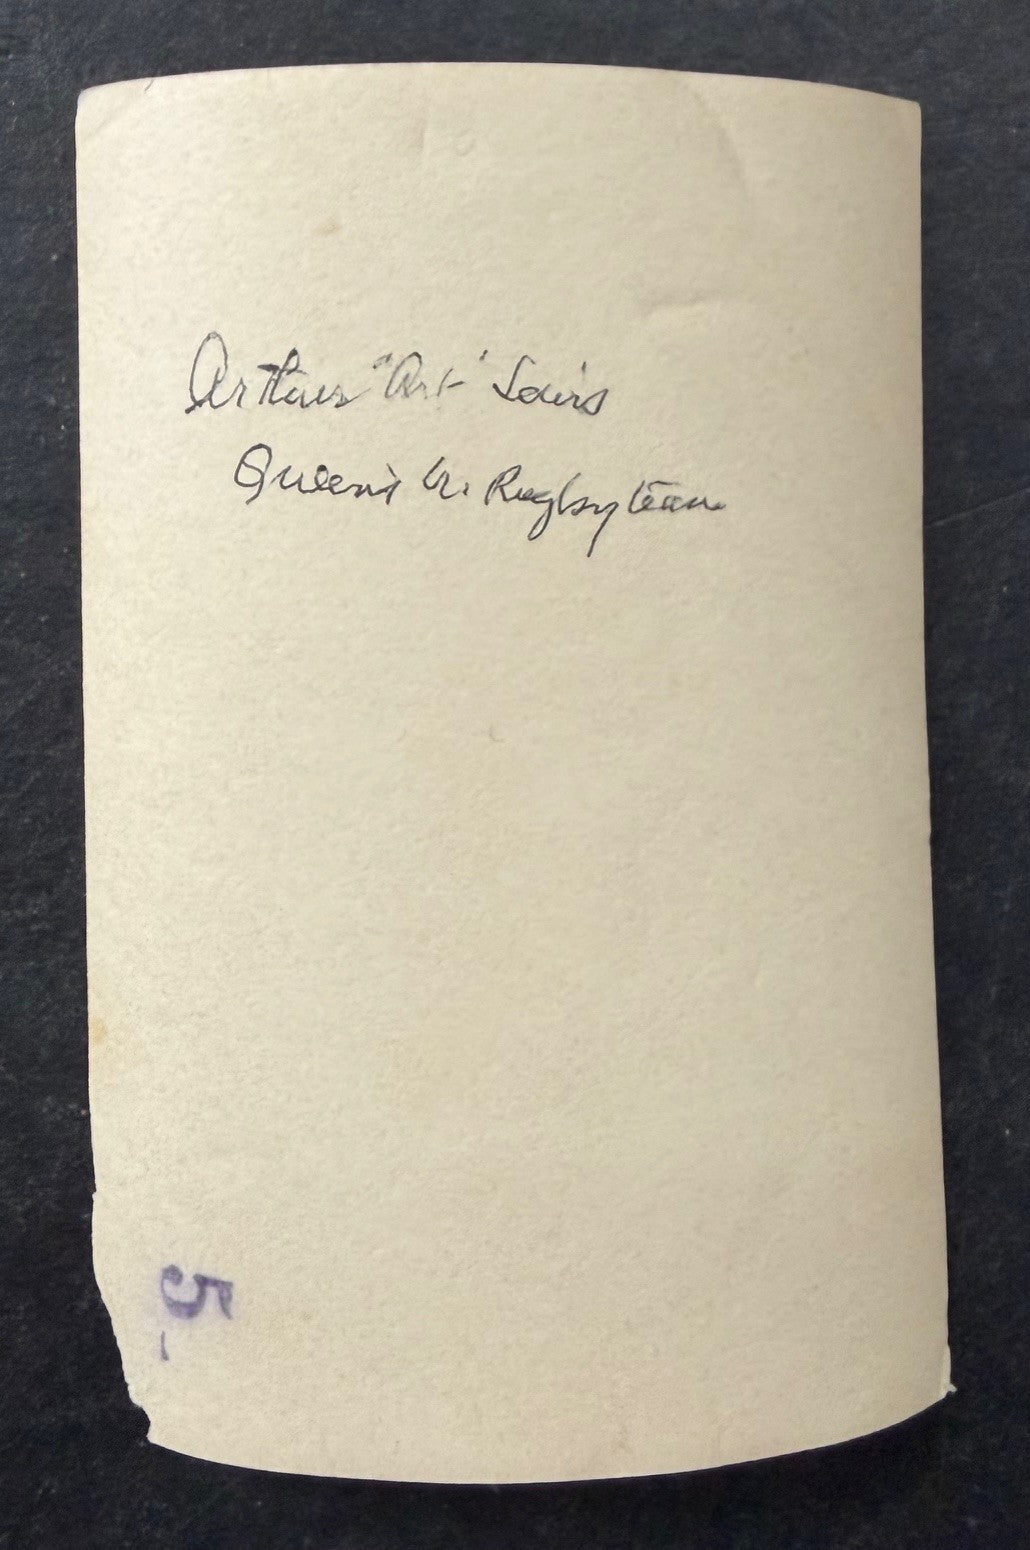 Arthur "Art" Lewis
Queen's U. Rugby team
5-